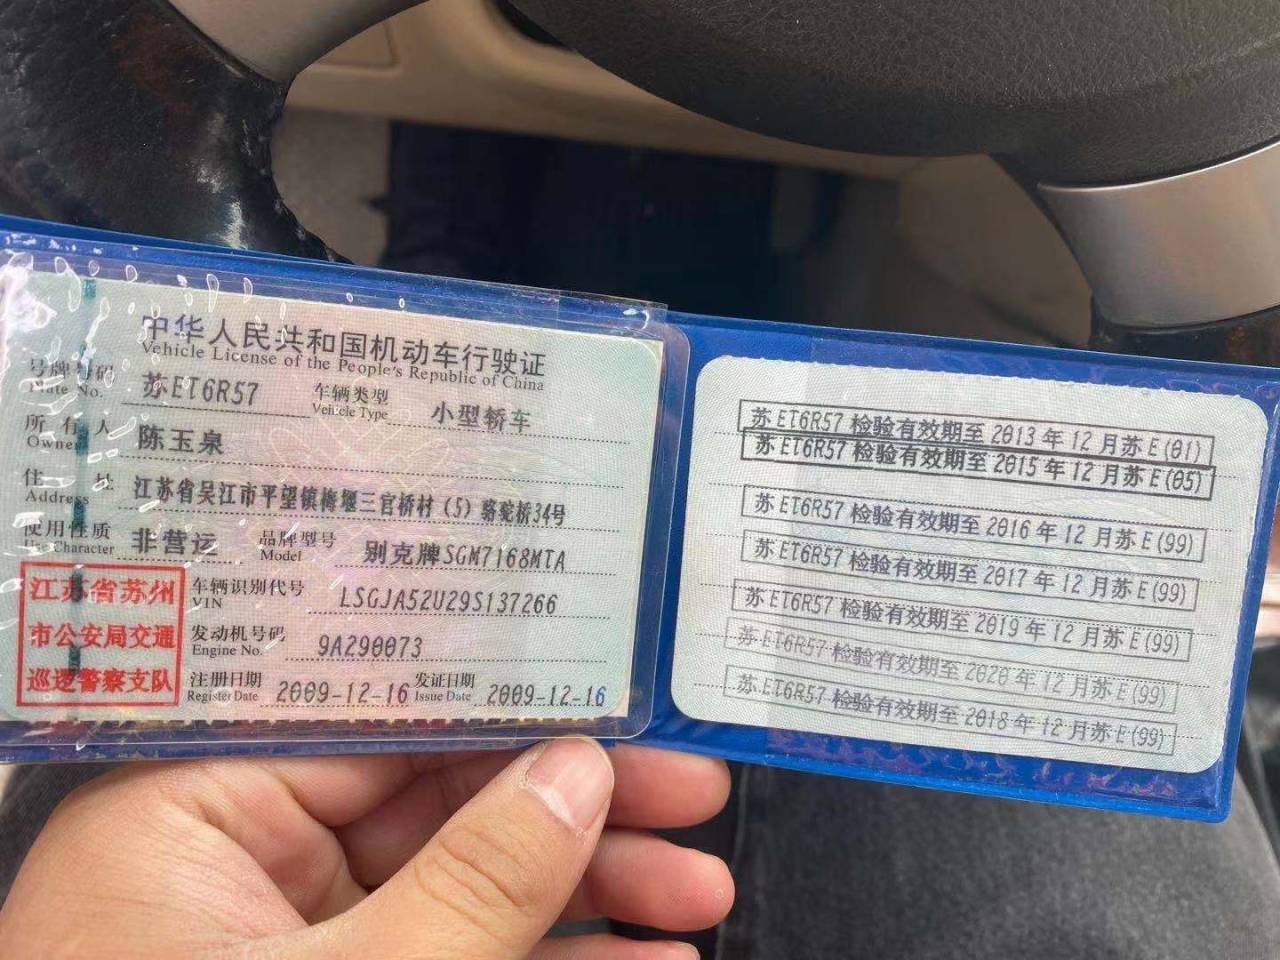 中华人民共和国机动车行驶证
Vehicle License of the People's Republic of China
号牌号码 苏ET6R57 车辆类型 小型轿车
Plate No. Vehicle Type
所有人 陈玉泉
Owner
住址 江苏省吴江市平望镇梅堰三官桥村(5)骆驼桥34号
Address
使用性质 非营运 品牌型号 别克牌SGM7168MTA
Use Character Model
江苏省苏州
市公安局交通
巡逻警察支队
车辆识别代号 LSGJA52U29S137266
VIN
发动机号码 9A290073
Engine No.
注册日期 2009-12-16 发证日期 2009-12-16
Register Date Issue Date
苏ET6R57 检验有效期至 2013 年 12 月苏 E(01)
苏ET6R57 检验有效期至 2015 年 12 月苏 E(05)
苏ET6R57 检验有效期至 2016 年 12 月苏 E(99)
苏ET6R57 检验有效期至 2017 年 12 月苏 E(99)
苏ET6R57 检验有效期至 2019 年 12 月苏 E(99)
苏ET6R57 检验有效期至 2020 年 12 月苏 E(99)
苏ET6R57 检验有效期至 2018 年 12 月苏 E(99)